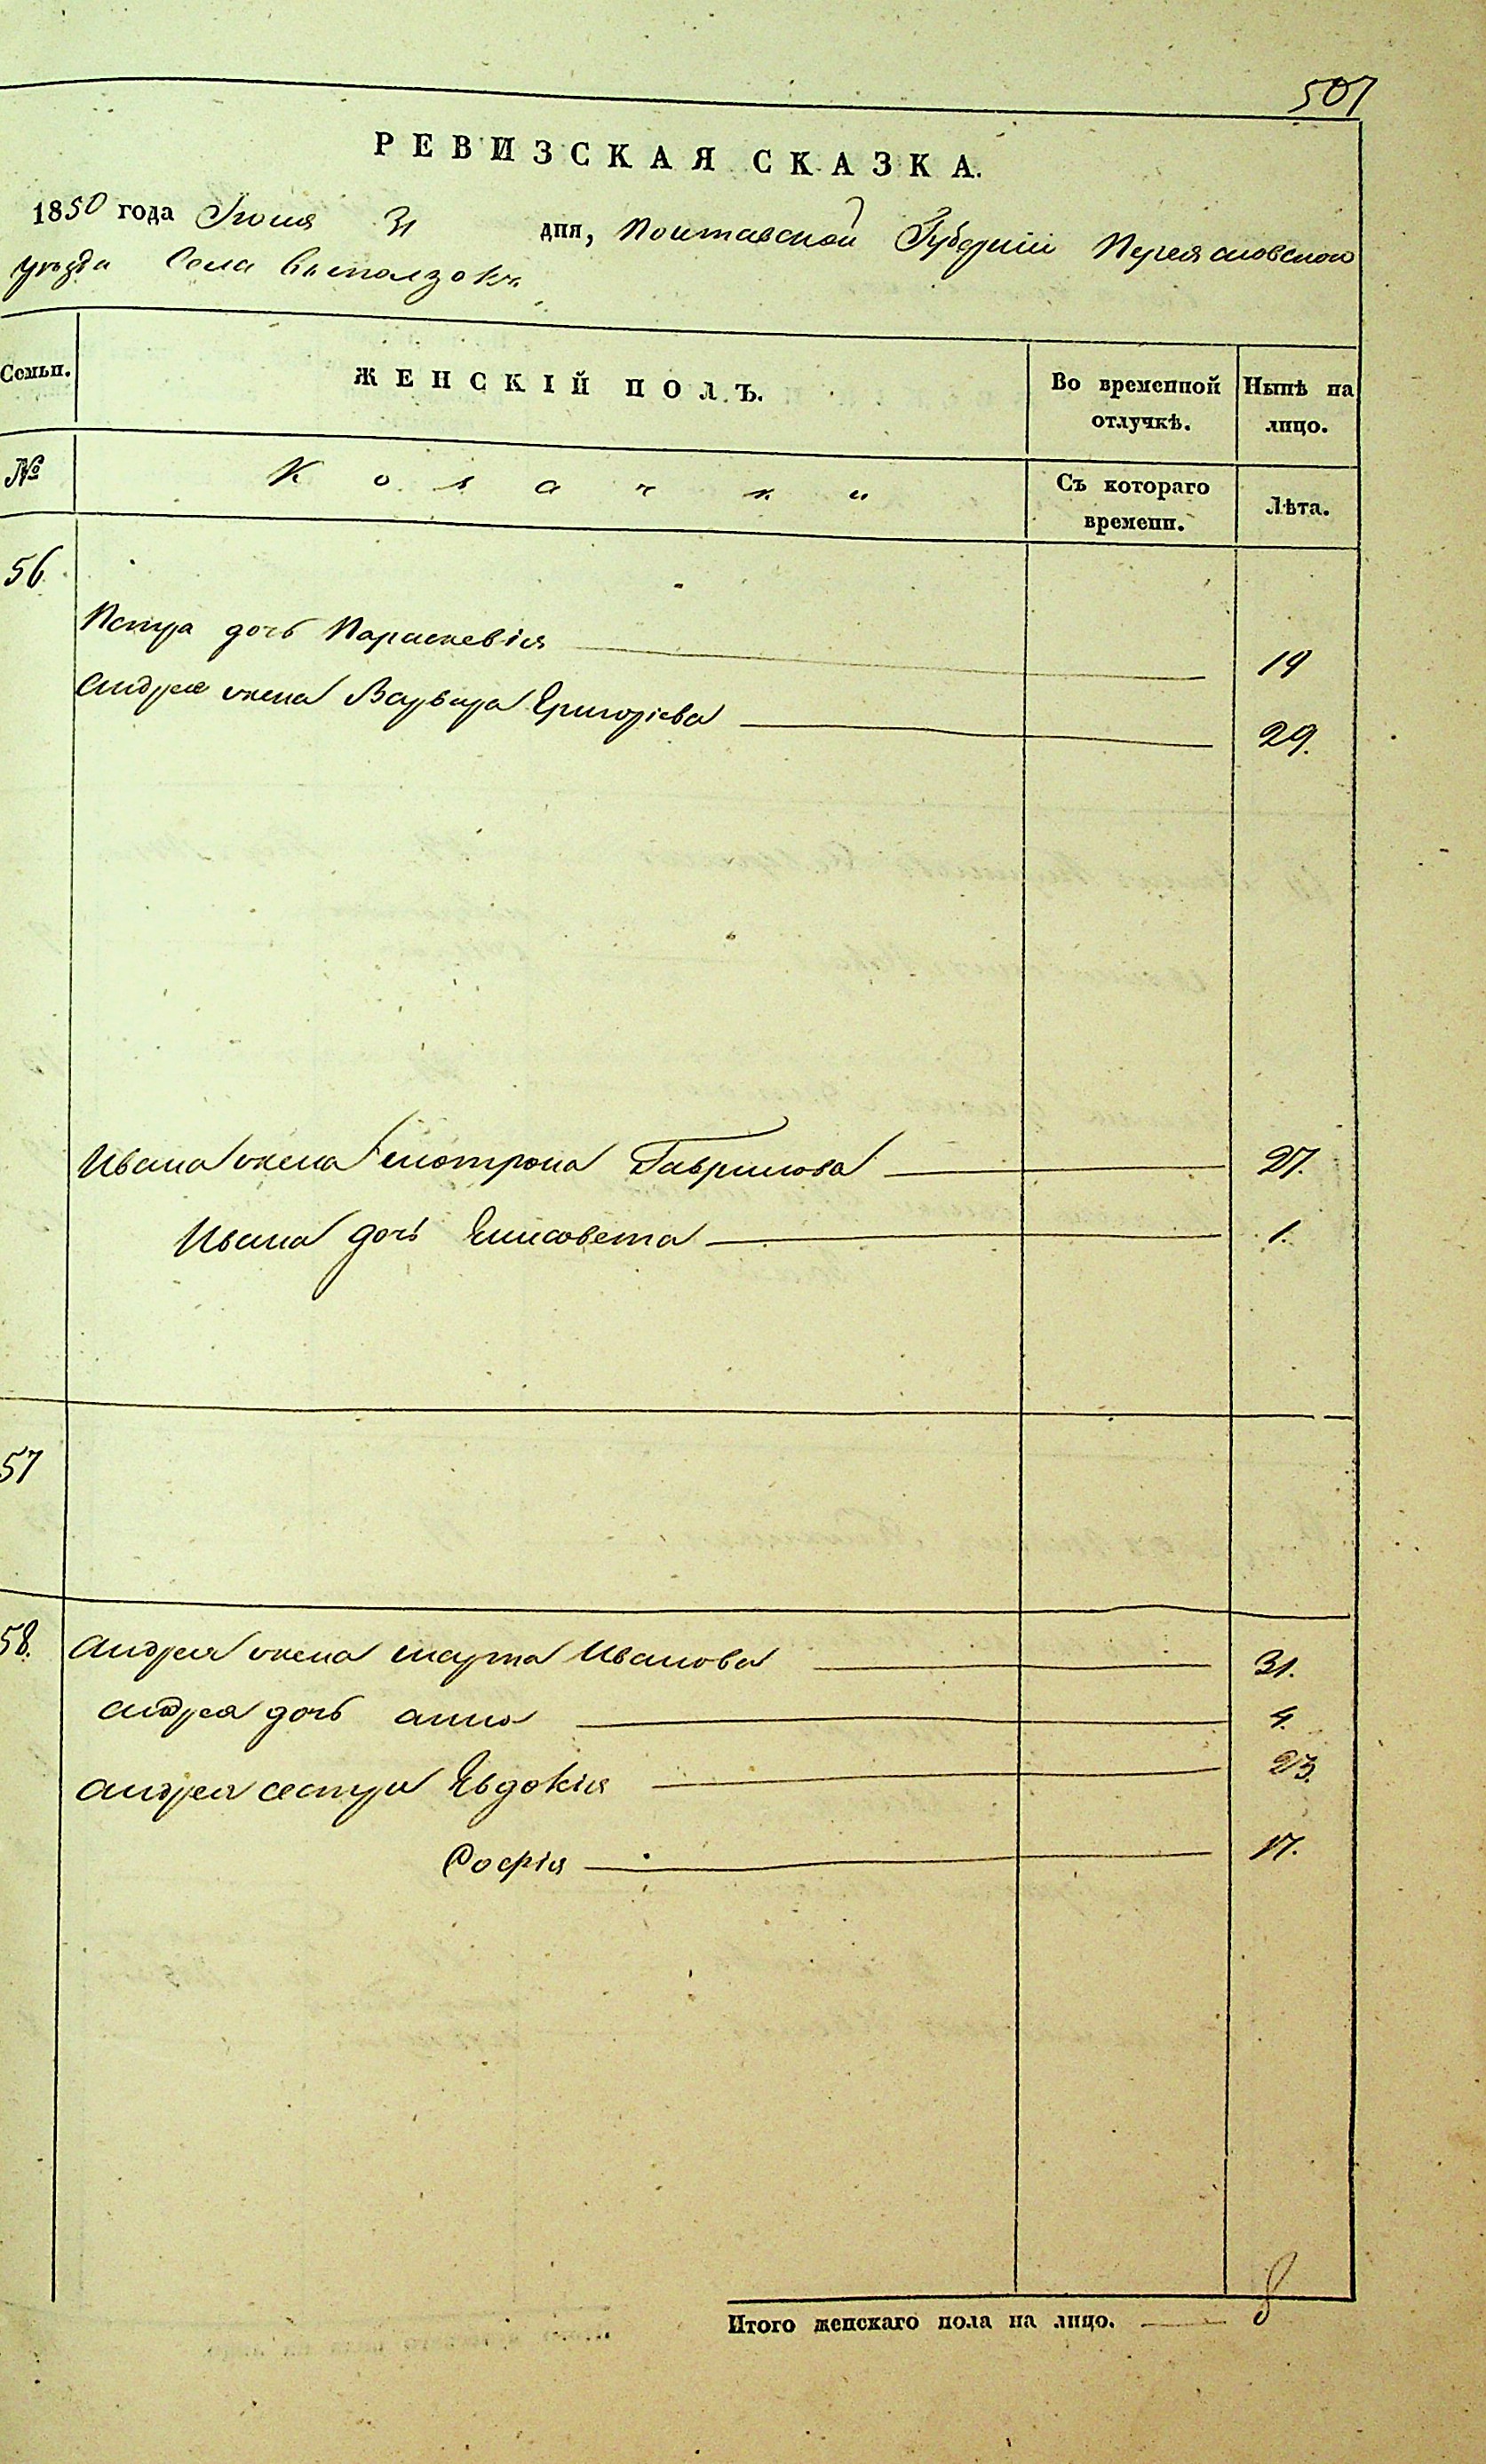 507
РЕВИЗСКАЯ СКАЗКА.
1850 года Іюля 31 дня, Полтавской Губерніи Переясловского
уѣзда Села Выползокъ
Семьи. ЖЕНСКІЙ ПОЛЪ. Во временной отлучкѣ. Нынѣ на лицо.
№ Козачки Съ котораго времени. Лѣта.
56.
Петра дочь Параскевія 19
Андрея жена Варвара Григоріева 29.
Ивана жена Мотрона Гаврилова 27.
Ивана дочь Елисавета 1.
57
58. Андрея жена Марта Иванова 31.
Андрея дочь Анна 4.
Андрея сестры Евдокія 23.
Софія 17.
Итого женскаго пола на лицо. 8